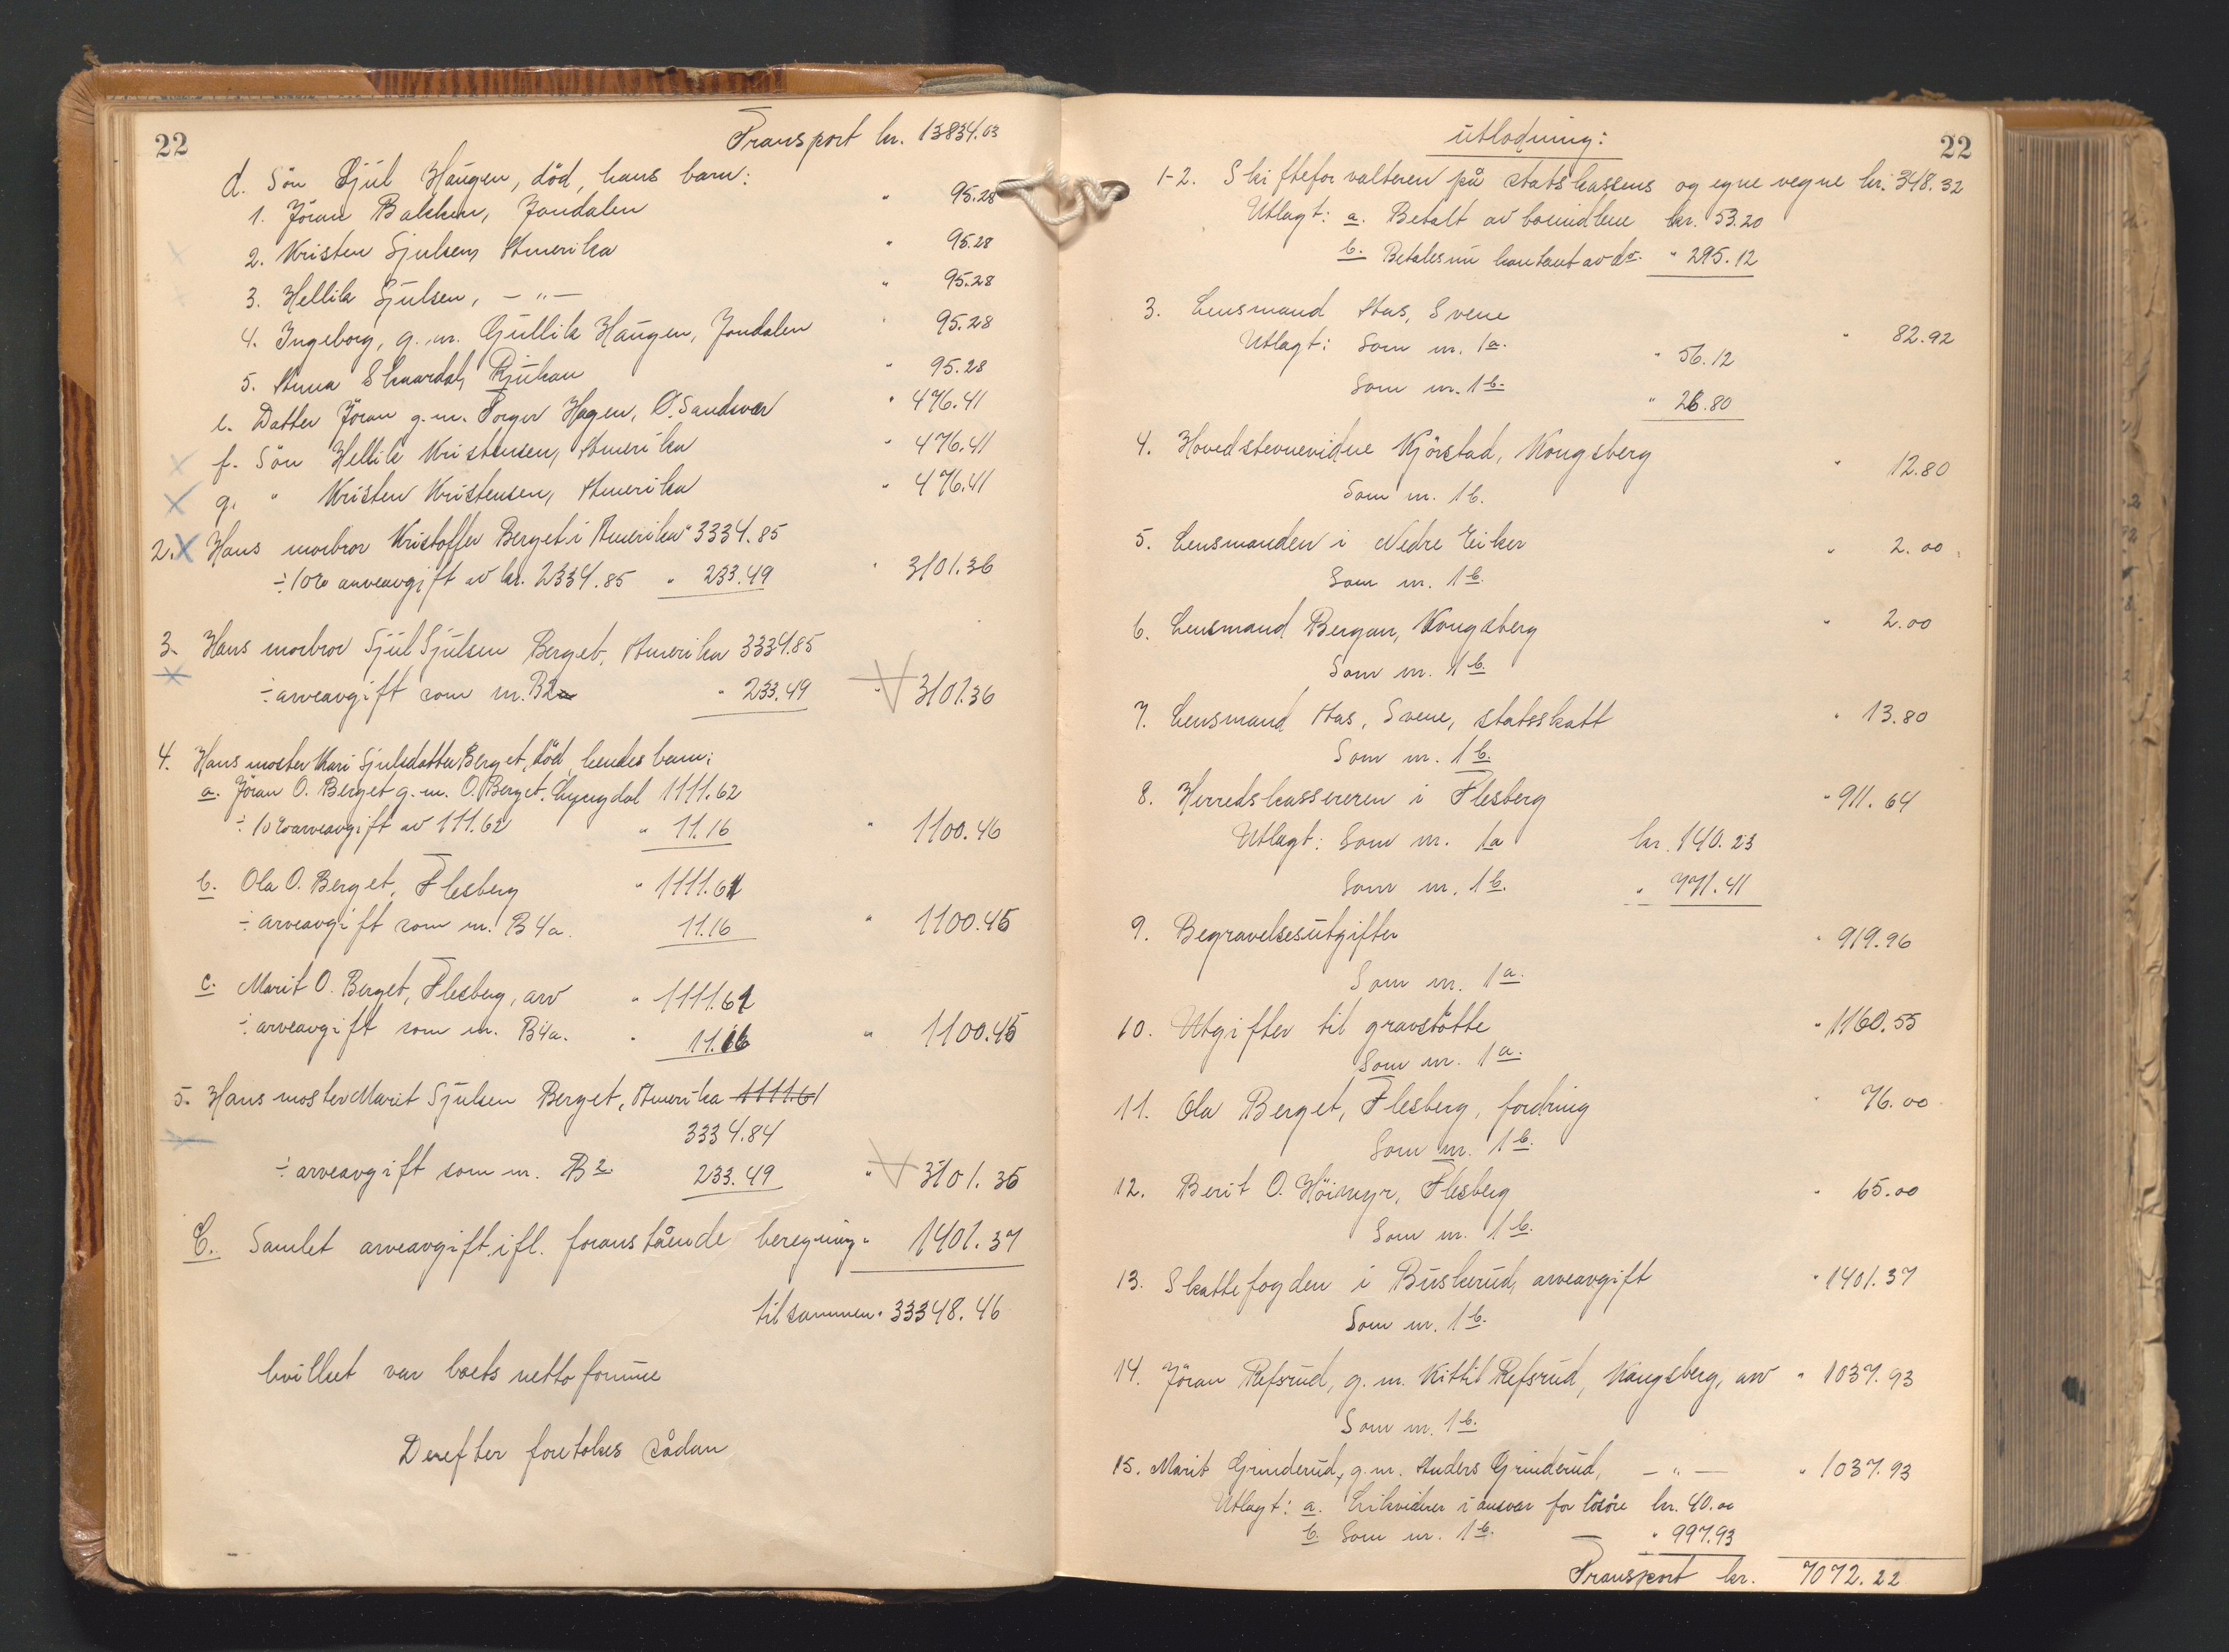 22
Transport kr. 13834.63
d. Sön Sjul Haugen, död, hans barn:
1. Jöran Bakken, Jondalen " 95.28
2. Kristen Sjulsen, Amerika " 95.28
3. Hellik Sjulsen, — " — " 95.28
4. Ingeborg, g. m. Gullik Haugen, Jondalen " 95.28
5. Anna Skaardal, Rjukan " 95.28
e. Datter Jöran g. m. Torger Hagen, Ö. Sandsvær " 476.41
f. Sön Hellik Kristensen, Amerika " 476.41
g. " Kristen Kristensen, Amerika " 476.41
2. Hans morbror Kristoffer Berget i Amerika " 3334.85
÷ 10% arveavgift av kr. 2334.85 " 233.49 " 3101.36
3. Hans morbror Sjul Sjulsen Berget, Amerika 3334.85
÷ arveavgift som nr. B2 " 233.49 " 3101.36
4. Hans moster Kari Sjulsdatter Berget, död, hendes barn:
a. Jöran O. Berget g. m. O. Berget, Lyngdal 1111.62
÷ 10% arveavgift av 111.62 " 11.16 " 1100.46
b. Ola O. Berget, Flesberg " 1111.61
÷ arveavgift som nr. B4a. 11.16 " 1100.45
c. Marit O. Berget, Flesberg, arv " 1111.61
÷ arveavgift som nr. B4a. " 11.16 " 1100.45
5. Hans moster Marit Sjulsen Berget, Amerika 1111.61
3334.84
÷ arveavgift som nr. B2 233.49 " 3101.35
C. Samlet arveavgift ifl. foranstående beregning " 1401.37
tilsammen " 33348.46
hvilket var boets netto formue
Derefter foretokes sådan
22
utlodning:
1-2. Skifteforvalteren på statskassens og egne vegne kr. 348.32
Utlagt: a. Betalt av boeindkne kr. 53.20
b. Betales nu kontant av do. " 295.12
3. Lensmand Aas, Svene " 82.92
Utlagt: Som nr. 1a. " 56.12
Som nr. 1b. " 26.80
4. Hovedstevnevidne Kjörstad, Kongsberg " 12.80
Som nr. 1b.
5. Lensmanden i Nedre Eiker " 2.00
Som nr. 1b.
6. Lensmand Bergan, Kongsberg " 2.00
Som nr. 1b.
7. Lensmand Aas, Svene, statsskatt " 13.80
Som nr. 1b.
8. Herredskassereren i Flesberg " 911.64
Utlagt: Som nr. 1a kr. 140.23
Som nr. 1b. " 771.41
9. Begravelsesutgifter " 919.96
Som nr. 1a.
10. Utgifter til gravstötte " 1160.55
Som nr. 1a.
11. Ola Berget, Flesberg, fordring " 76.00
Som nr. 1b.
12. Berit O. Höimyr, Flesberg " 65.00
Som nr. 1b.
13. Skattefogden i Buskerud, arveavgift " 1401.37
Som nr. 1b.
14. Jöran Refsrud, g. m. Kittil Refsrud, Kongsberg, arv " 1037.93
Som nr. 1b.
15. Marit Grinderud, g. m. Anders Grinderud, — " — " 1037.93
Utlagt: a. Likviderer i ansvar for lösöre kr. 40.00
b. Som nr. 1b. " 997.93
Transport kr. 7072.22